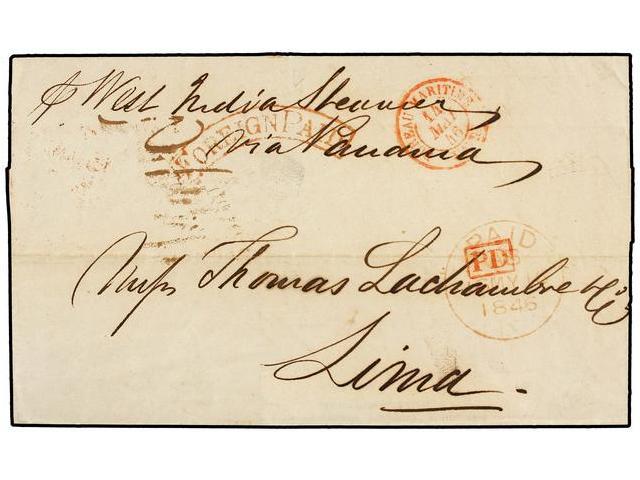 p West India Steamer
via Panama
FOREIGN PAID
BUREAU MARITIME
14
MAI
46
PAID
MY
1846
PD
Messrs Thomas Lachambre & Co
Lima